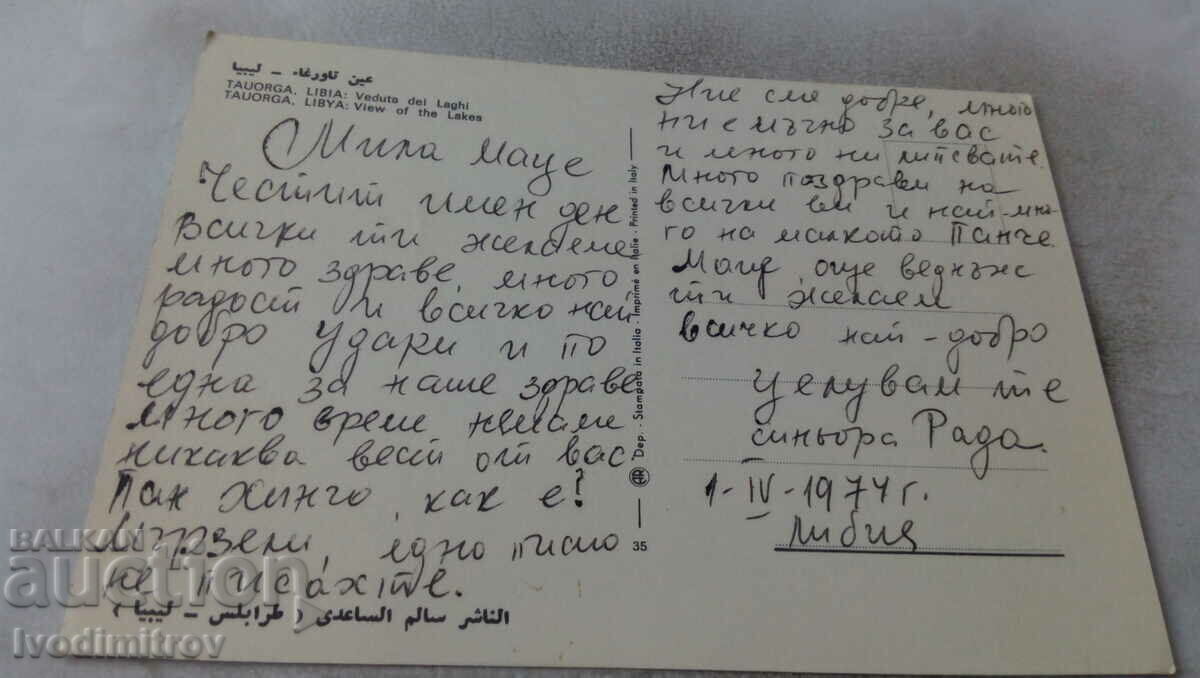 عين تاورغاء – ليبيا
TAUORGA, LIBIA: Veduta dei Laghi
TAUORGA, LIBYA: View of the Lakes
Мила Маце
Честит имен ден
Всички ти желаеме
много здраве, много
радост и всичко най
добро Удари и по
една за наше здраве
много време немаме
никаква вест от вас
Пан Хинго, как е?
Мързели, едно писмо
не писахте.
الناشر سالم الساعدى ( طرابلس – ليبيا )
35
Dep. - Stampata in Italia - Imprimé en Italie - Printed in Italy
Ние сме добре, много
ни е мъчно за вас
и много ни липсвате.
Много поздрави на
всички ви и най-мно-
го на малкото Панче.
Маце, още веднъж
ти желаем
всичко най-добро
Целувам те
синьора Рада.
1-IV-1974 г.
Либия
BALKAN
auction
Ivodimitrov